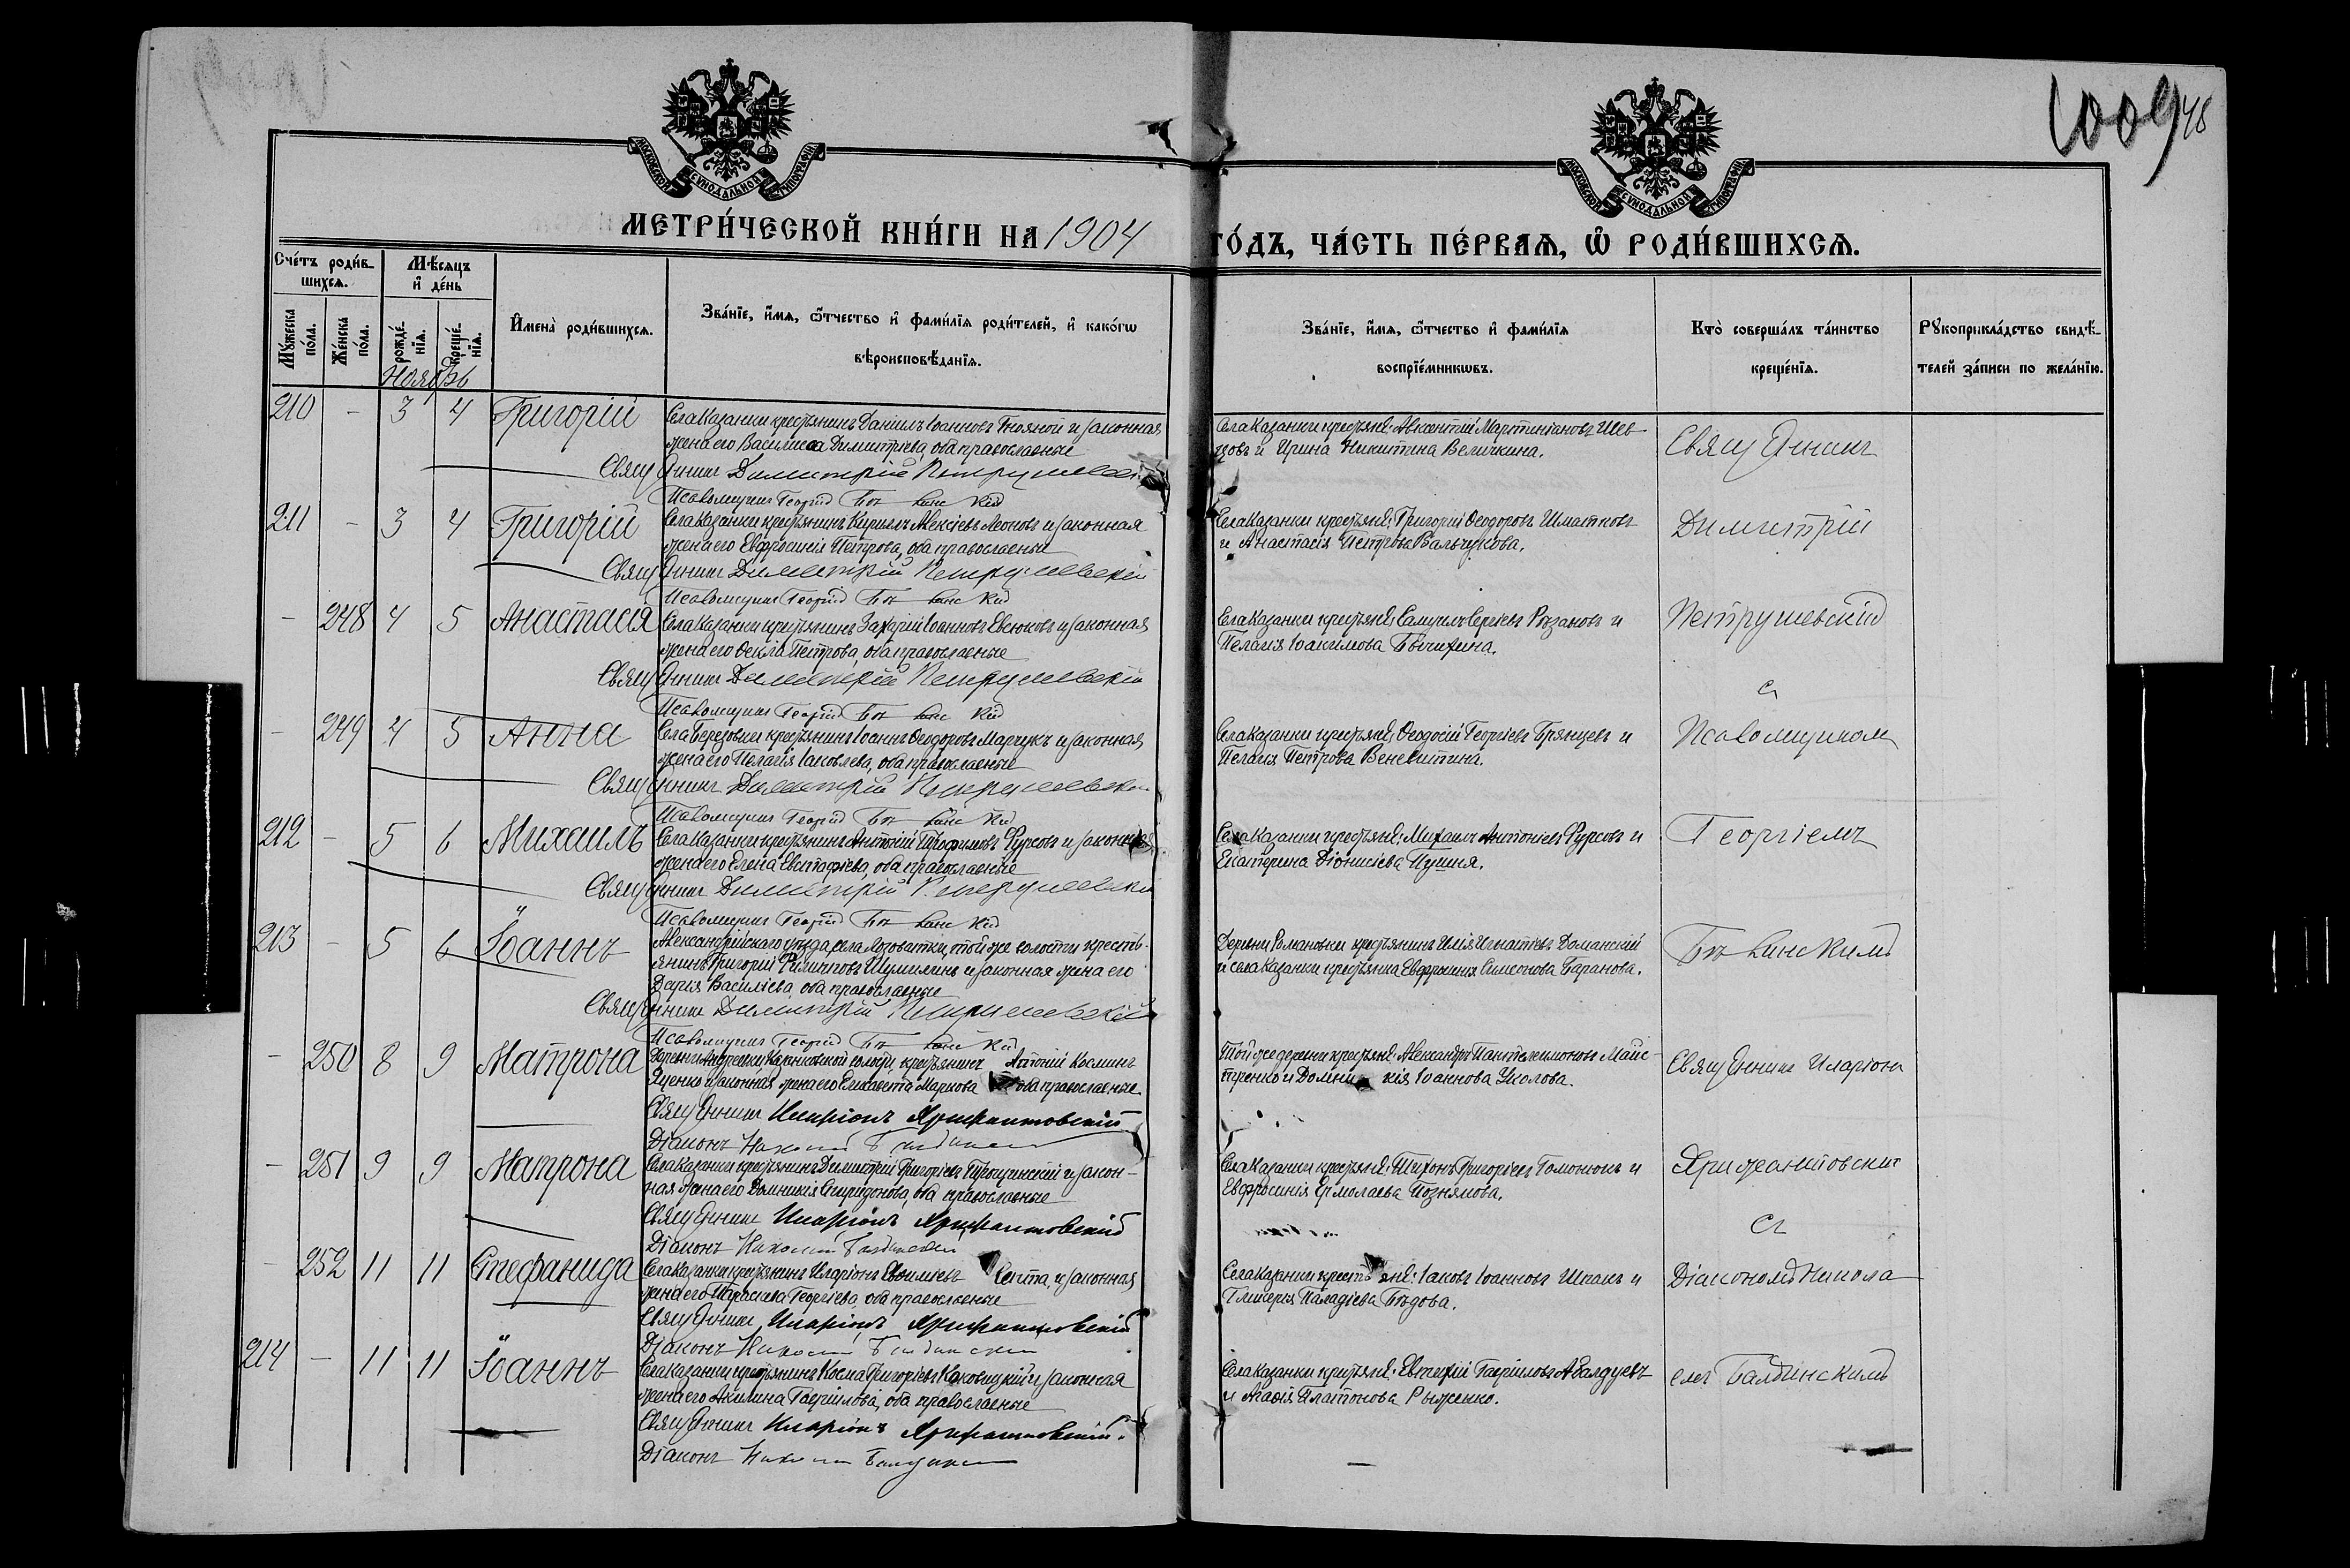 1009 48
МОСКОВСКОЙ СУНОДАЛЬНОЙ ТИПОГРАФІИ
МОСКОВСКОЙ СУНОДАЛЬНОЙ ТИПОГРАФІИ
МЕТРИ́ЧЕСКОЙ КНИ́ГИ НА 1904 ГО́ДЪ, ЧА́СТЬ ПЕ́РВАѦ, Ѽ РОДИ́ВШИХСѦ.
Сче́тъ роди́вшихсѧ.
Мꙋ́жеска по́ла.
Же́нска по́ла.
Мѣ́сяцъ и҆ де́нь
рожде́нїѧ.
креще́нїѧ.
И҆мена̀ роди́вшихсѧ.
Зва́нїе, и҆́мѧ, ѻ҆́тчество и҆ фами́лїѧ роди́телей, и҆ како́гѡ
вѣроисповѣ́данїѧ.
Зва́нїе, и҆́мѧ, ѻ҆́тчество и҆ фами́лїѧ
воспрїе́мникѡвъ.
Кто̀ соверша́лъ та́инство
креще́нїѧ.
Рꙋкоприкла́дство свидѣ́телей за́писи по жела́нїю.
Ноябрь
210 - 3 4 Григорій
Села Казанки крестьянинъ Даніилъ Іоанновъ Гнояной и законная
жена его Василисса Димитріева, оба православные
Священникъ Димитрій Петрушевскій
Псаломщикъ Георгій
Села Казанки крестьяне: Авксентій Мартиніановъ Шевцовъ и Ирина Никитина Величкина.
Священникъ
211 - 3 4 Григорій
Села Казанки крестьянинъ Кириллъ Алексіевъ Леоновъ и законная
жена его Евфросинія Петрова, оба православные
Священникъ Димитрій Петрушевскій
Псаломщикъ Георгій
Села Казанки крестьяне: Григорій Ѳеодоровъ Шматковъ
и Анастасія Петрова Вальчукова.
Димитрій
- 248 4 5 Анастасія
Села Казанки крестьянинъ Захарій Іоанновъ Евсюковъ и законная
жена его Ѳекла Петрова, оба православные
Священникъ Димитрій Петрушевскій
Псаломщикъ Георгій
Села Казанки крестьяне: Самуилъ Сергіевъ Рязановъ и
Пелагія Іоакимова Бычихина.
Петрушевскій
съ
- 249 4 5 Анна
Села Березовки крестьянинъ Іоаннъ Ѳеодоровъ Марчукъ и законная
жена его Пелагія Іаковлева, оба православные
Священникъ Димитрій Петрушевскій
Псаломщикъ Георгій
Села Казанки крестьяне: Ѳеодосій Георгіевъ Брянцевъ и
Пелагія Петрова Веневитина.
Псаломщикомъ
212 - 5 6 Михаилъ
Села Казанки крестьянинъ Антоній Трофимовъ Фурсовъ и законная
жена его Елена Евстафіева, оба православные
Священникъ Димитрій Петрушевскій
Псаломщикъ Георгій
Села Казанки крестьяне: Михаилъ Антоніевъ Фурсовъ и
Екатерина Діонисіева Пушня.
Георгіемъ
213 - 5 6 Іоаннъ
Александрійскаго уѣзда, села Лозоватки, той же волости крестьянинъ Григорій Филипповъ Шумилинъ и законная жена его
Дарія Василіева, оба православные
Священникъ Димитрій Петрушевскій
Псаломщикъ Георгій
Деревни Романовки крестьянинъ Илія Игнатіевъ Доманскій
и села Казанки крестьянка Евфросинія Симеонова Баранова.
- 250 8 9 Матрона
Деревни Андреевки Казанковской волости, крестьянинъ Антоній Косминъ
Яценко и законная жена его Елисавета Маркова оба православные.
Священникъ Иларіонъ Хрисанфовскій
Діаконъ Николай Балдинскій
Той же деревни крестьяне: Александръ Пантелеимоновъ Майстренко и Домникія Іоаннова Уколова.
Священникъ Иларіонъ
- 251 9 9 Матрона
Села Казанки крестьянинъ Димитрій Григоріевъ Турчинскій и законная жена его Домникія Спиридонова, оба православные
Священникъ Иларіонъ
Діаконъ Николай Балдинскій
Села Казанки крестьяне: Тихонъ Григоріевъ Гомонюкъ и
Евфросинія Ермолаева Познякова.
съ
- 252 11 11 Стефанида
Села Казанки крестьянинъ Иларіонъ Евѳиміевъ и законная
жена его Параскева Георгіева, оба православные
Священникъ Иларіонъ
Діаконъ Николай Балдинскій
Села Казанки крестьяне: Іаковъ Іоанновъ Шпакъ и
Гликерія Паладіева Бѣдова.
Діакономъ Никола
214 - 11 11 Іоаннъ
Села Казанки крестьянинъ Косма Григоріевъ Каховицкій и законная
жена его Акилина Гавріилова, оба православные
Священникъ Иларіонъ
Діаконъ Николай
Села Казанки крестьяне: Евтихій Гавріиловъ Абалдуевъ
и Агафія Платонова Рыженко.
емъ Балдинскимъ